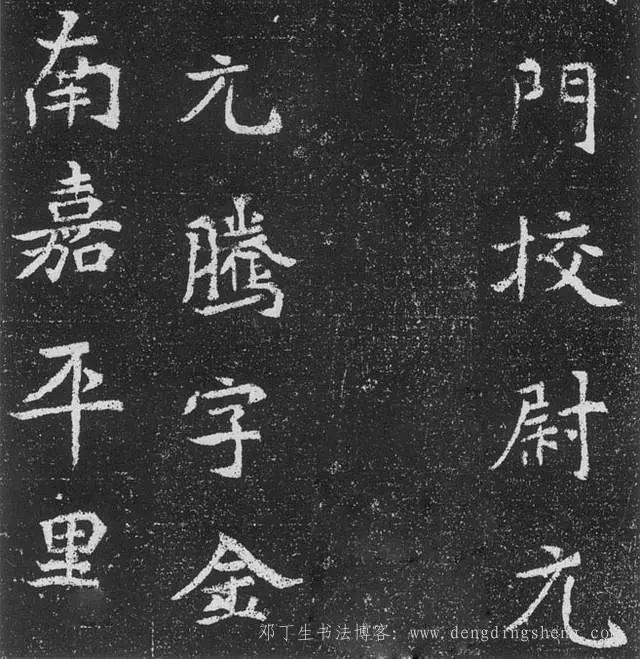 門挍尉元
元騰字金
南嘉平里
邓丁生书法博客：www.dengdingsheng.com